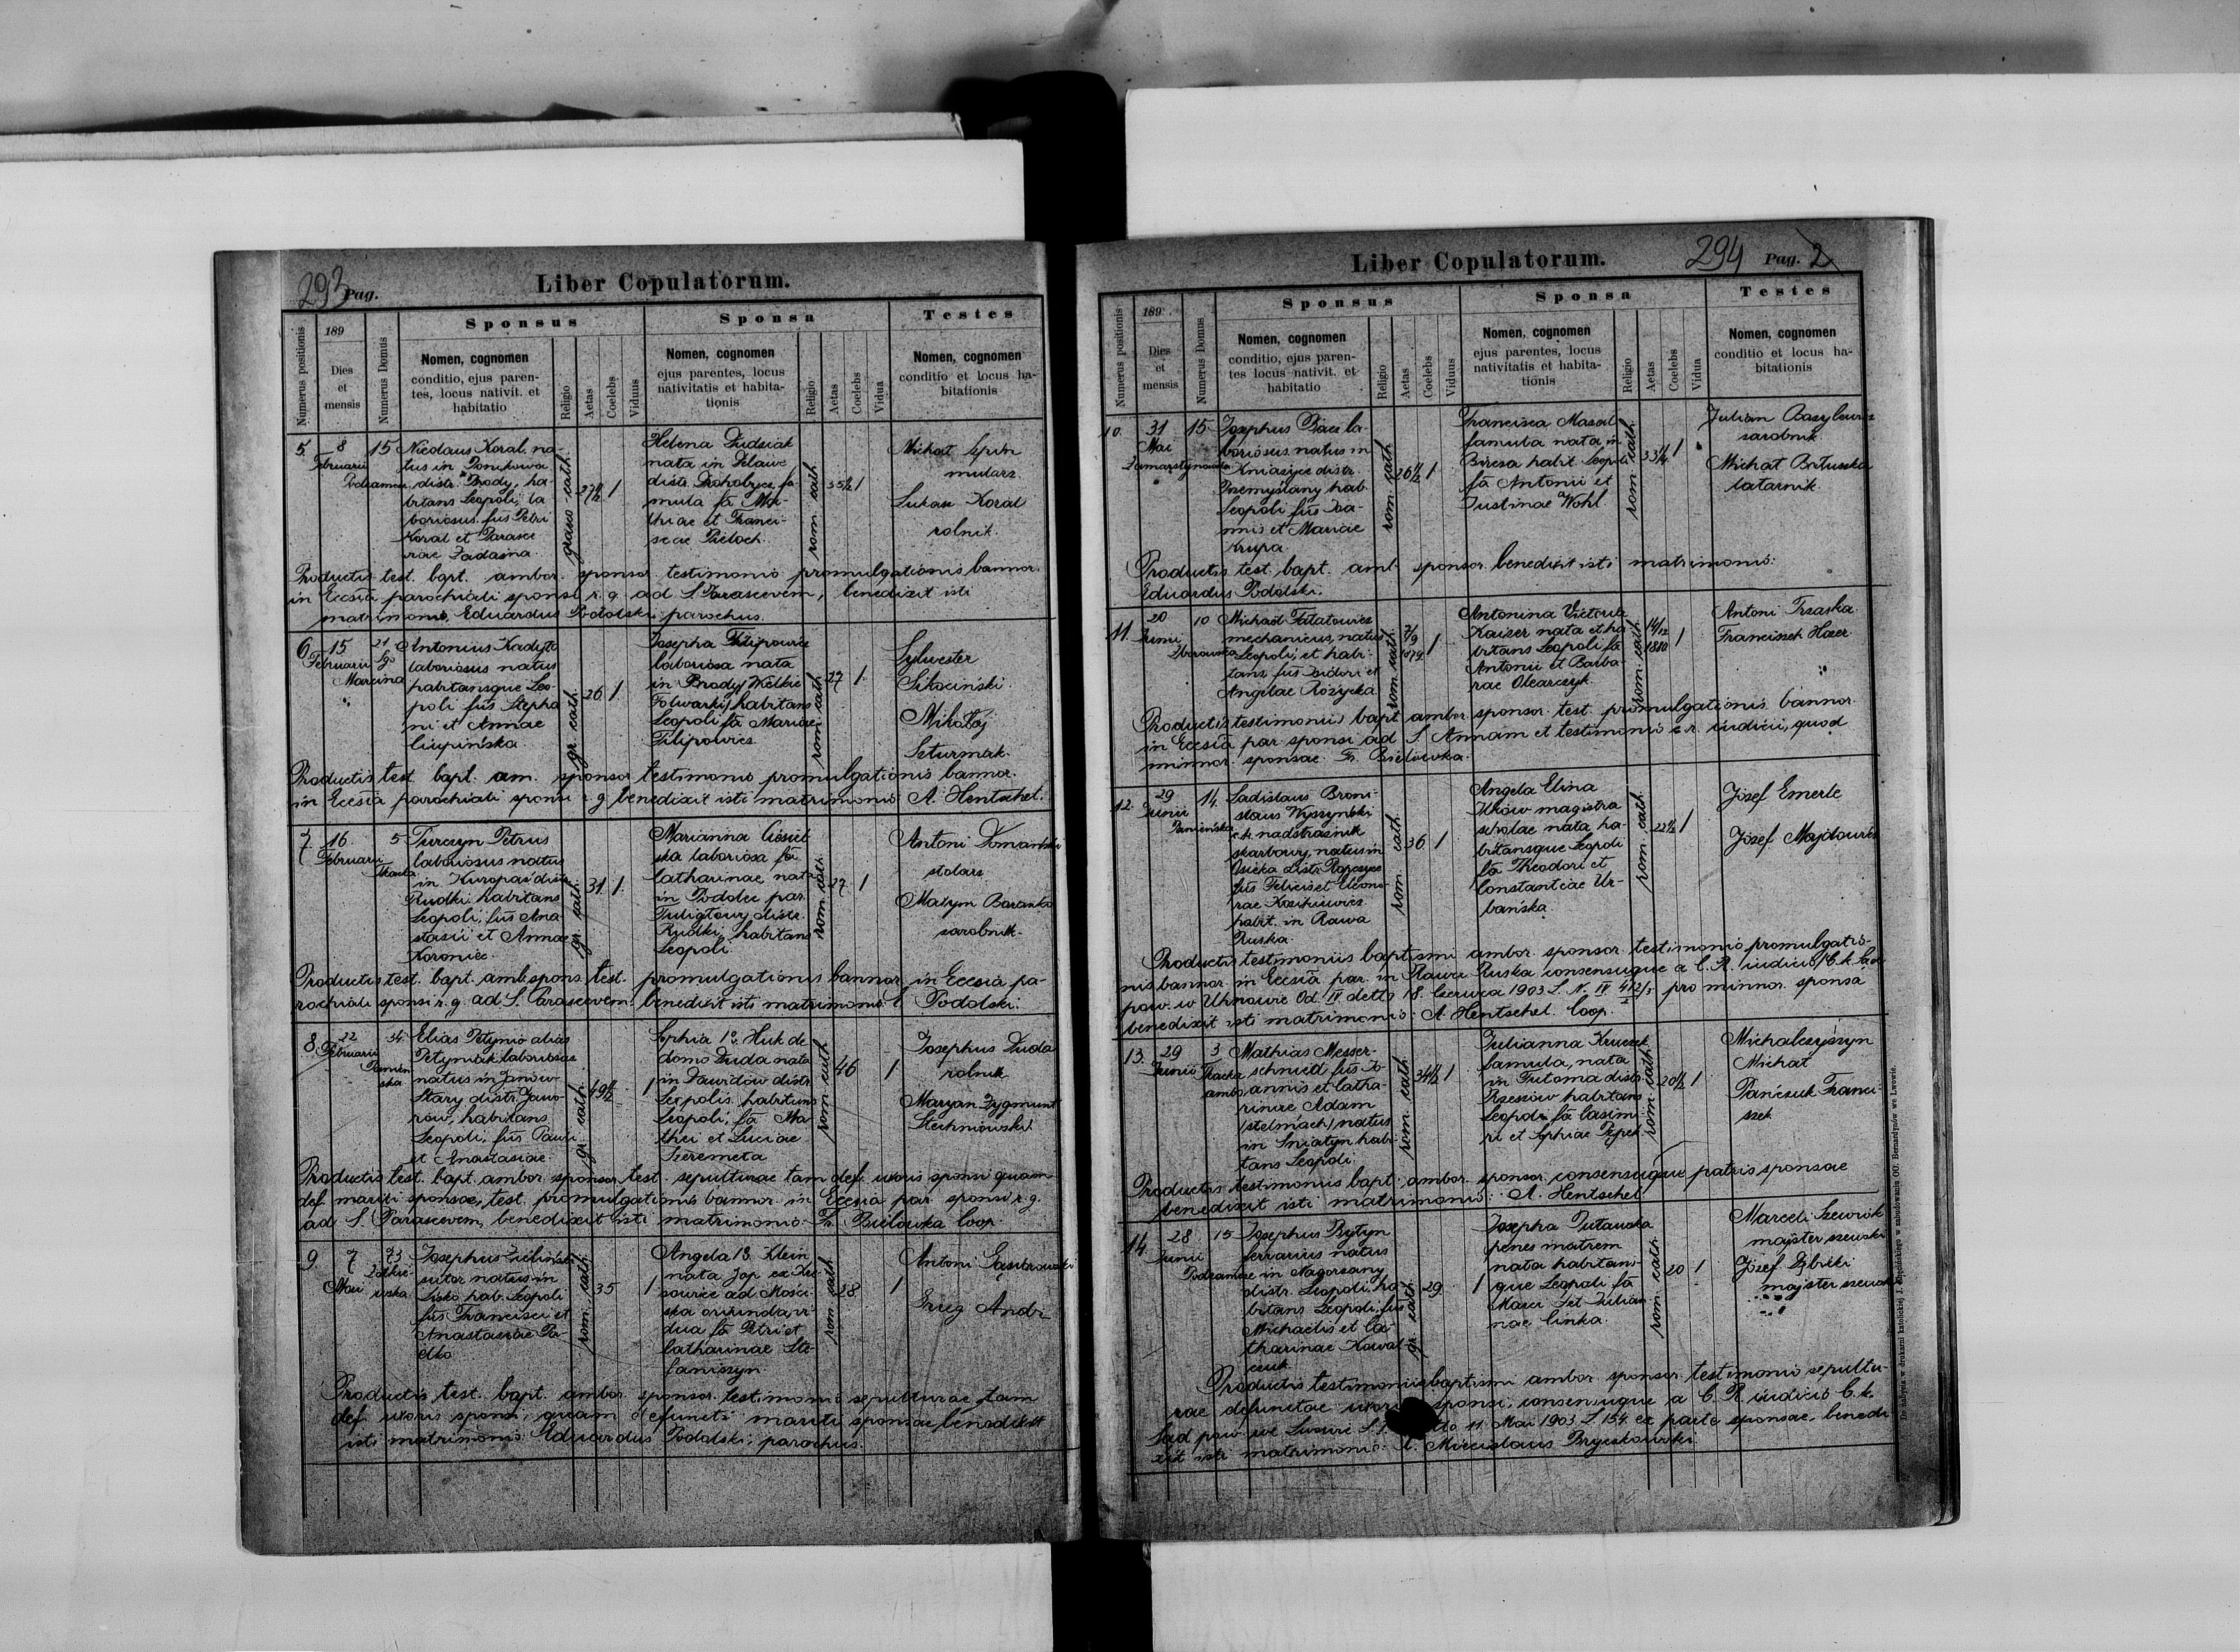 293 Pag.
Liber Copulatorum.
Numerus positionis
189
Dies
et
mensis
Numerus Domus
Sponsus
Nomen, cognomen
conditio, ejus paren-
tes, locus nativit. et
habitatio
Religio
Aetas
Coelebs
Viduus
Sponsa
Nomen, cognomen
ejus parentes, locus
nativitatis et habita-
tionis
Religio
Aetas
Coelebs
Vidua
Testes
Nomen, cognomen
conditio et locus ha-
bitationis
5.
8
Februarii
15
Nicolaus Koral, na-
tus in Ponikowa
distr. Brody, ha-
bitans Leopoli, la-
boriosus, fus Petri
Koral et Parasce-
vae
graeco-cath.
27½
1
Helena Dudziak
nata in
distr. Drohobycz, fa-
mula fa Ma-
thiae et Franci-
scae Pieloch.
rom. cath
35½
1
Michał
mularz
Łukasz Koral
rolnik.
Productis test. bapt. ambor. sponsor. testimonio promulgationis bannor.
in Ecclsia parochiali sponsi r. g. ad S. Parascevem, benedixit isti
matrimonio Eduardus Podolski, parochus.
6
15
Februarii
21
Marcina
Antonius Kadyło
laboriosus natus
habitansque Leo-
poli fus Stepha
ni et Annae
gr. cath
26
1
Josepha Filipowicz
laboriosa nata
in Brody/Wielkie
Folwarki/habitans
Leopoli fa Mariae
Filipowicz.
rom. cath
27
1
Sylwester
Mikołaj
Productis test. bapt. am. sponsor testimonio promulgationis bannor.
in Eccsia parochiali sponsi r. g. benedixit isti matrimonio A. Hentschel.
7.
16
Februarii
Tkacka
5
Turczyn Petrus
laboriosus natus
in distr.
Rudki habitans
Leopoli, fus Ana-
stasii et Annae
Koroniec.
gr. cath
31
1
Marianna
ska laboriosa fa
Catharinae, nata
in Podolec par.
Tuligłowy distr.
Rudki, habitans
Leopoli
rom. cath
27
1
Antoni Domański
stolarz
Baranko
zarobnik.
Productis test. bapt. amb. spons. test. promulgationis bannor. in Eccsia pa-
rochiali sponsi r. g. ad S. Parascevem benedixit isti matrimonio E. Podolski.
8.
22
Februarii
Panień
ska
34
Elias Petynio alias
Petyniak, laboriosus
natus in Janów-
Stary distr. Jawo-
row, habitans
Leopoli, fus Pauli
et Anastasiae.
gr. cath
49½
1
Sophia 1º Huk de
domo Duda nata
in Dawidów distr.
Leopolis habitans
Leopoli, fa Ma-
thei et Luciae
Szeremeta
rom. cath
46
1
Josephus Duda
rolnik
Maryan Zygmunt
Stechniowski
Productis test. bapt. ambor sponsor test. sepulturae tam def. uxoris sponsi quam
def. mariti sponsae, test. promulgationis bannor. in Eccsia par. sponsi r. g.
ad S. Parascevem, benedixit isti matrimonio Fr. Bielówka coop.
9
7
Mai
23
Żółkiew
ska
Josephus Zieliński
sutor natus in
Lisko hab. Leopoli
fus Francisci et
Anastasiae Pa-
rom. cath
35
1
Angela 1º. Klein
nata Jop ex Kru-
sowice ad Mości-
ska oriunda, vi-
dua fa Petri et
Catharinae Ste-
faniszyn
rom. cath
28
1
Antoni Gąsiorowski
Andr
Productis test. bapt. ambor. sponsor. testimonio sepulturae tam
def. uxoris sponsi, quam defuncti mariti sponsae, benedixit
isti matrimonio Eduardus Podolski, parochus.
294 Pag. 2
Liber Copulatorum.
Numerus positionis
189
Dies
et
mensis
Numerus Domus
Sponsus
Nomen, cognomen
conditio, ejus paren-
tes locus nativit. et
habitatio
Religio
Aetas
Coelebs
Viduus
Sponsa
Nomen, cognomen
ejus parentes, locus
nativitatis et habita-
tionis
Religio
Aetas
Coelebs
Vidua
Testes
Nomen, cognomen
conditio et locus ha-
bitationis
10.
31
Mai
15
Josephus la-
boriosus natus in
Kniażyce distr.
Przemyślany hab.
Leopoli fus Joa-
nnis et Mariae
Krupa.
rom. cath
1
Francisca
famula nata in
Bircza habit. Leopoli
fa Antonii et
Justinae Wohl
rom. cath
1
Julian
zarobnik
Michał
latarnik.
Productis test. bapt. amb. sponsor. benedixit isti matrimonio:
Eduardus Podolski.
11.
20
Junii
10
Michael Fałatowicz
mechanicus, natus
Leopoli, et habi-
tans, fus Isidori et
Angelae Różycka
rom. cath
1879
1
Antonina Victoria
Kaiser nata et ha-
bitans Leopoli fa
Antonii et Barba-
rae Olearczyk
rom. cath
14/12
1880
1
Antoni Trzaska
Franciszek
Productis testimoniis bapt. ambor. sponsor. test. promulgationis bannor.
in Eccsia par. sponsi ad S. Annam et testimonio c. r. iudicii, quod
minnor. sponsae. Fr. Bielówka.
12.
29
Junii
Panieńska
14
Ladislaus Broni-
slaus Wyszyński
c. k. nadstrażnik
skarbowy, natus in
Osieka distr. Ropczyce
fus Felicis et Eleono-
rae
habit. in Rawa
Ruska.
rom. cath
36
1
Angela Elina
Ilków magistra
scholae nata ha-
bitansque Leopoli
fa Theodori et
Constantiae Ur-
bańska
rom. cath
22½
1
Józef Emerle
Józef
Productis testimoniis baptismi ambor. sponsor. testimonio promulgatio-
nis bannor. in Eccsia par. in Rawa Ruska consensuque a C. R. iudicio/C. k. Sąd
pow. w Uhnowie Od. IV detto 18. Czerwca 1903 L. N. IV 412/3 pro minnor. sponsa
benedixit isti matrimonio: A. Hentschel. Coop.
13.
29
Junii
3
Tkacka
ambo
Mathias Messer-
schmied fus Jo-
annis et Catha-
rinae Adam
/stelmach/ natus
in Sniatyn habi-
tans Leopoli
rom. cath
34½
1
Julianna Kruczek
famula, nata
in Trzitoma distr.
Rzeszów habitans
Leopoli fa Casimi-
ri et Sophiae
rom. cath
20½
1
Michalczyszyn
Michał
Pańczuk Franci-
szek
Productis testimoniis bapt. ambor. sponsor. consensuque patris sponsae
benedixit isti matrimonio: A. Hentschel
14.
28
Junii
Podzamcze
15
Josephus Bytyn
ferrarius natus
in Nagorzany
distr. Leopoli, ha-
bitans Leopoli, fus
Michaelis et Ca-
tharinae Kowal-
czuk
gr. cath
29
1
Josepha
penes matrem
nata habitans-
que Leopoli fa
Marci et Julian-
nae Linka.
rom. cath
20
1
Marceli
majster szewski
Józef
majster szewski
Productis testimoniis baptismi ambor. sponsor. testimonio sepultu-
rae defunctae uxoris sponsi, consensuque a C. R. iudicio C. k.
Sąd pow. we Lwowie 11. Mai 1903 L. 154. ex parte sponsae, benedi
xit isti matrimonio: X. Miecislaus Bryczkowski.
Do nabycia w drukarni katolickiej J. Chęcińskiego w zabudowaniu OO. Bernardynów we Lwowie.